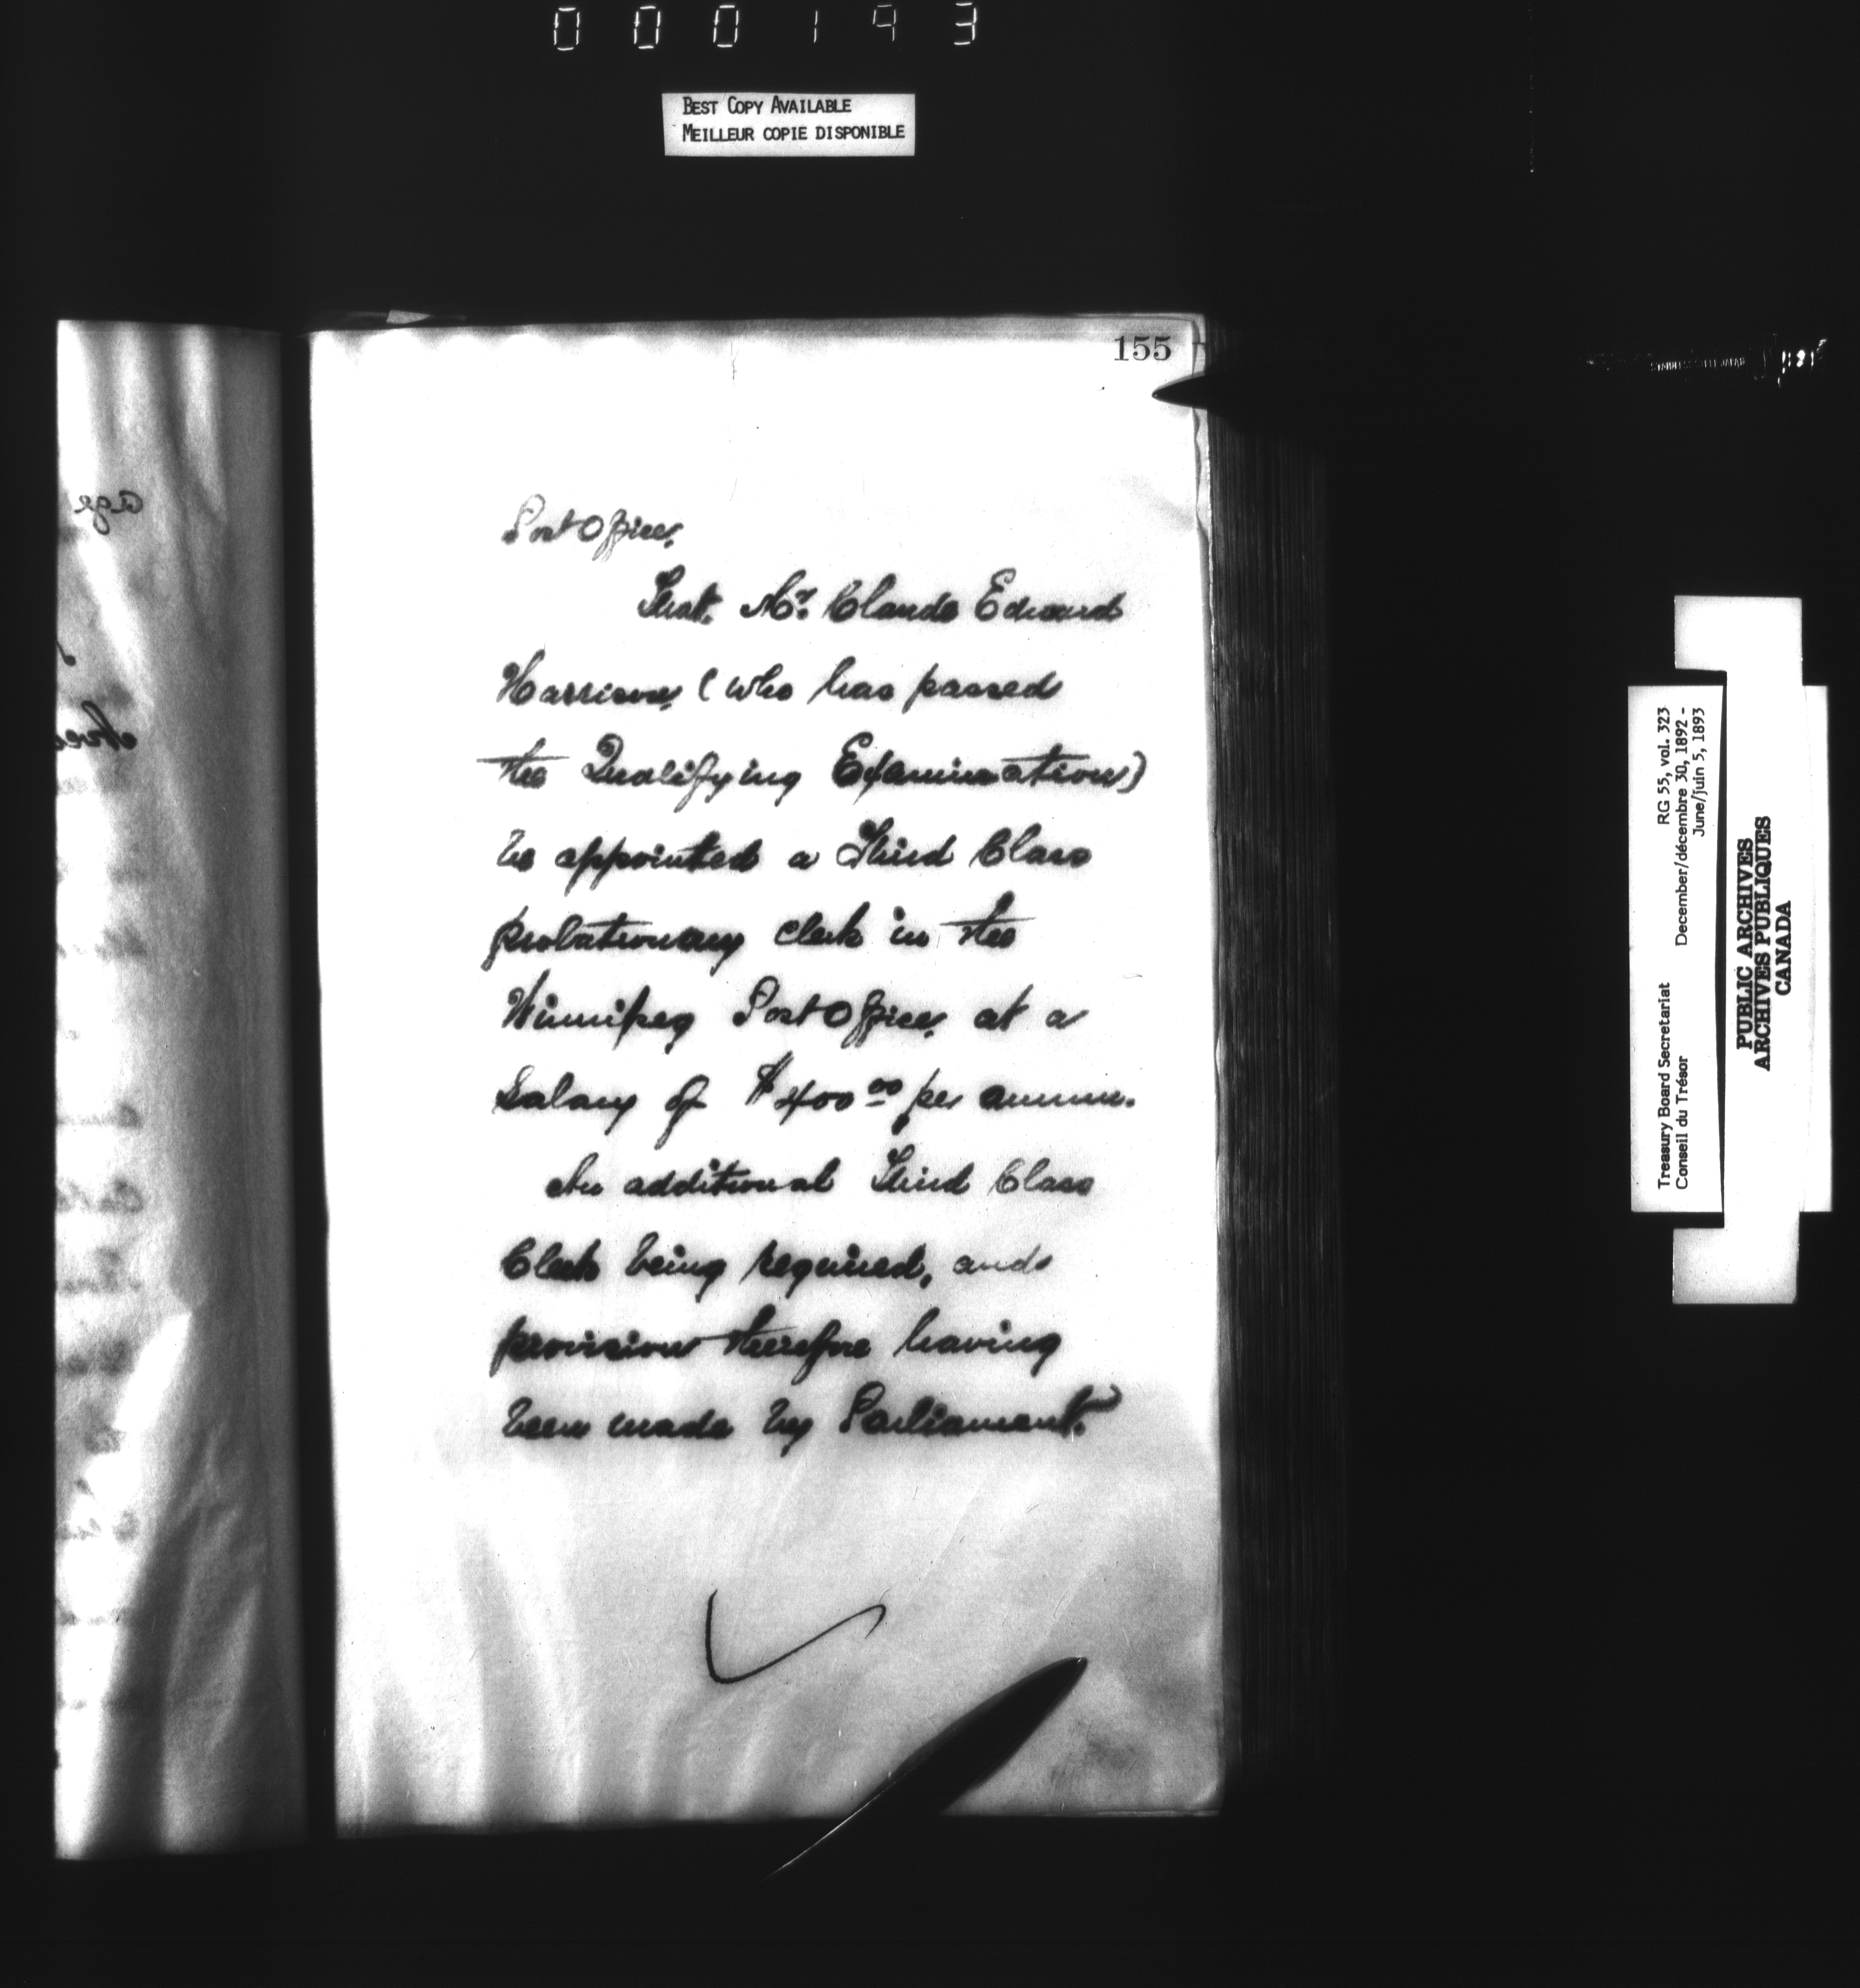 000193
BEST COPY AVAILABLE
MEILLEUR COPIE DISPONIBLE
155
Post Office,
That Mr. Claude Edward
Harrison, (who has passed
the Qualifying Examination)
be appointed a Third Class
probationary clerk in the
Winnipeg Post Office, at a
Salary of $400 00 per annum.
An additional Third Class
Clerk being required, and
provision therefore having
been made by Parliament.
age
Treasury Board Secretariat RG 55, vol. 323
Conseil du Trésor December/décembre 30, 1892 -
June/juin 5, 1893
PUBLIC ARCHIVES
ARCHIVES PUBLIQUES
CANADA